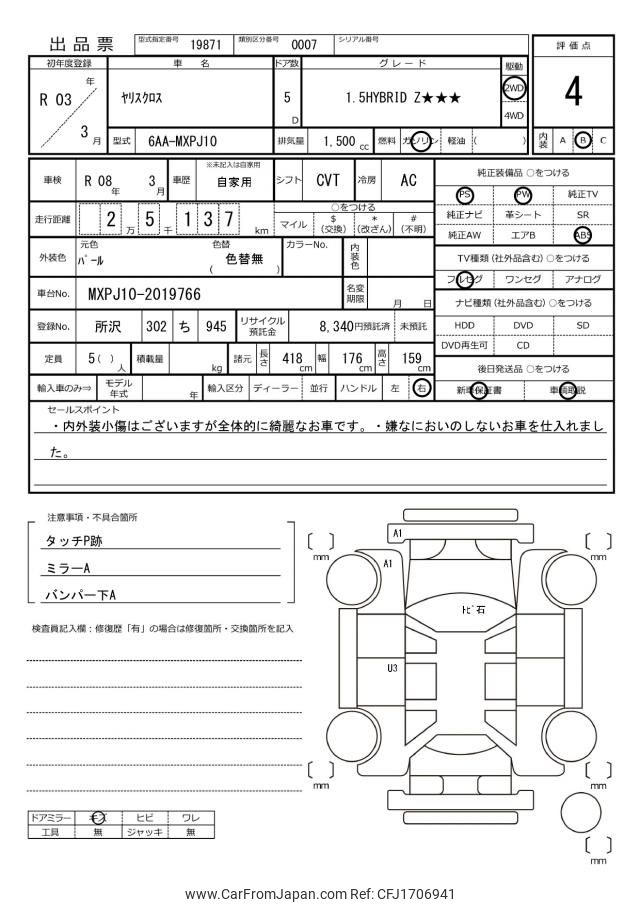 出品票 型式指定番号 19871 類別区分番号 0007 シリアル番号
評価点
4
内装 A B C
初年度登録 車名 ドア数 グレード 駆動
R 03 年 3 月 ﾔﾘｽｸﾛｽ 5 D 1.5HYBRID Z★★★ 2WD 4WD
型式 6AA-MXPJ10 排気量 1,500 cc 燃料 ガソリン 軽油 ( )
車検 R 08 年 3 月 車歴 ※未記入は自家用 自家用 シフト CVT 冷房 AC
走行距離 2 万 5 千 1 3 7 km
○をつける
マイル $ (交換) * (改ざん) # (不明)
外装色 元色 ﾊﾟｰﾙ 色替 ( 色替無 ) カラーNo. 内装色
車台No. MXPJ10-2019766 名変期限 月 日
登録No. 所沢 302 ち 945 リサイクル預託金 8,340円預託済 未預託
定員 5 ( ) 人 積載量 kg 諸元 長さ 418 cm 幅 176 cm 高さ 159 cm
輸入車のみ⇒ モデル年式 年 輸入区分 ディーラー 並行 ハンドル 左 右
純正装備品 ○をつける
PS PW 純正TV
純正ナビ 革シート SR
純正AW エアB ABS
TV種類 (社外品含む) ○をつける
フルセグ ワンセグ アナログ
ナビ種類 (社外品含む) ○をつける
HDD DVD SD
DVD再生可 CD
後日発送品 ○をつける
新車保証書 車輌取説
セールスポイント
・内外装小傷はございますが全体的に綺麗なお車です。・嫌なにおいのしないお車を仕入れまし
た。
注意事項・不具合箇所
タッチP跡
ミラーA
バンパー下A
検査員記入欄：修復歴「有」の場合は修復箇所・交換箇所を記入
A1
A1
ﾄﾋﾞ石
U3
mm
mm
mm
mm
mm
ドアミラー キズ ヒビ ワレ
工具 無 ジャッキ 無
www.CarFromJapan.com Ref: CFJ1706941